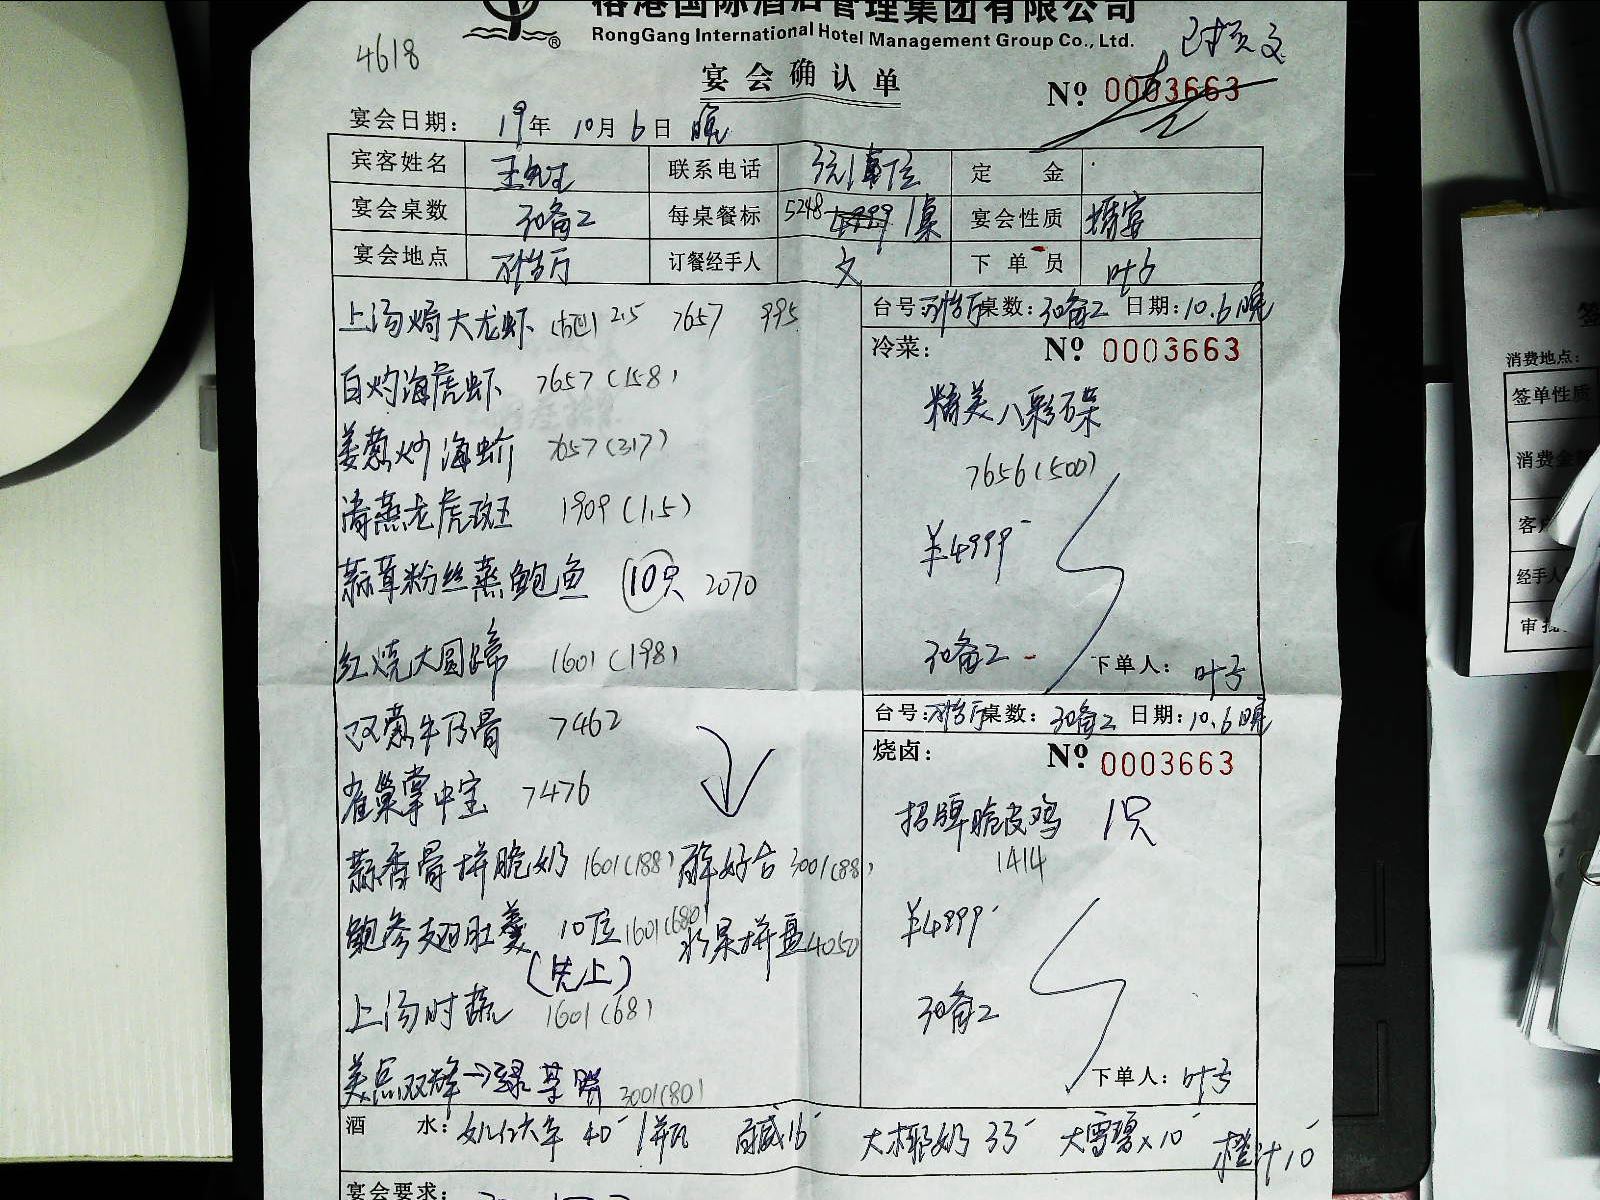 榕港国际酒店管理集团有限公司
RongGang International Hotel Management Group Co., Ltd.
4618
宴会确认单
Nº 0003663
宴会日期: 19年 10月 6日 晚
宾客姓名 王先生 联系电话 定金
宴会桌数 30备2 每桌餐标 5248 4999 1桌 宴会性质 婚宴
宴会地点 订餐经手人 文 下单员
台号: 桌数: 30备2 日期: 10.6晚
上汤焗大龙虾 2.5 7657 995
冷菜: Nº 0003663
白灼海虎虾 7657 (158)
精美八彩碟
姜葱炒海蚧 7657 (317)
7656 (500)
清蒸龙虎斑 1909 (1.5)
¥4999-
蒜茸粉丝蒸鲍鱼 10只 2070
红烧大圆蹄 1601 (198)
30备2 下单人:
台号: 桌数: 30备2 日期: 10.6晚
双葱牛仔骨 7462
烧卤: Nº 0003663
雀巢掌中宝 7476
招牌脆皮鸡 1只
1414
蒜香骨拼脆奶 1601 (188) 3001 (88)
鲍参翅肚羹 10位 1601 (680) 水果拼盘 4050
¥4999-
(先上)
上汤时蔬 1601 (68)
30备2
美点双辉→ 3001 (80)
下单人:
酒水: 女儿红六年 40- 1瓶 大椰奶 33- 大雪碧×10- 橙汁10-
宴会要求:
消费地点:
签单性质
消费金
客户
经手人
审批